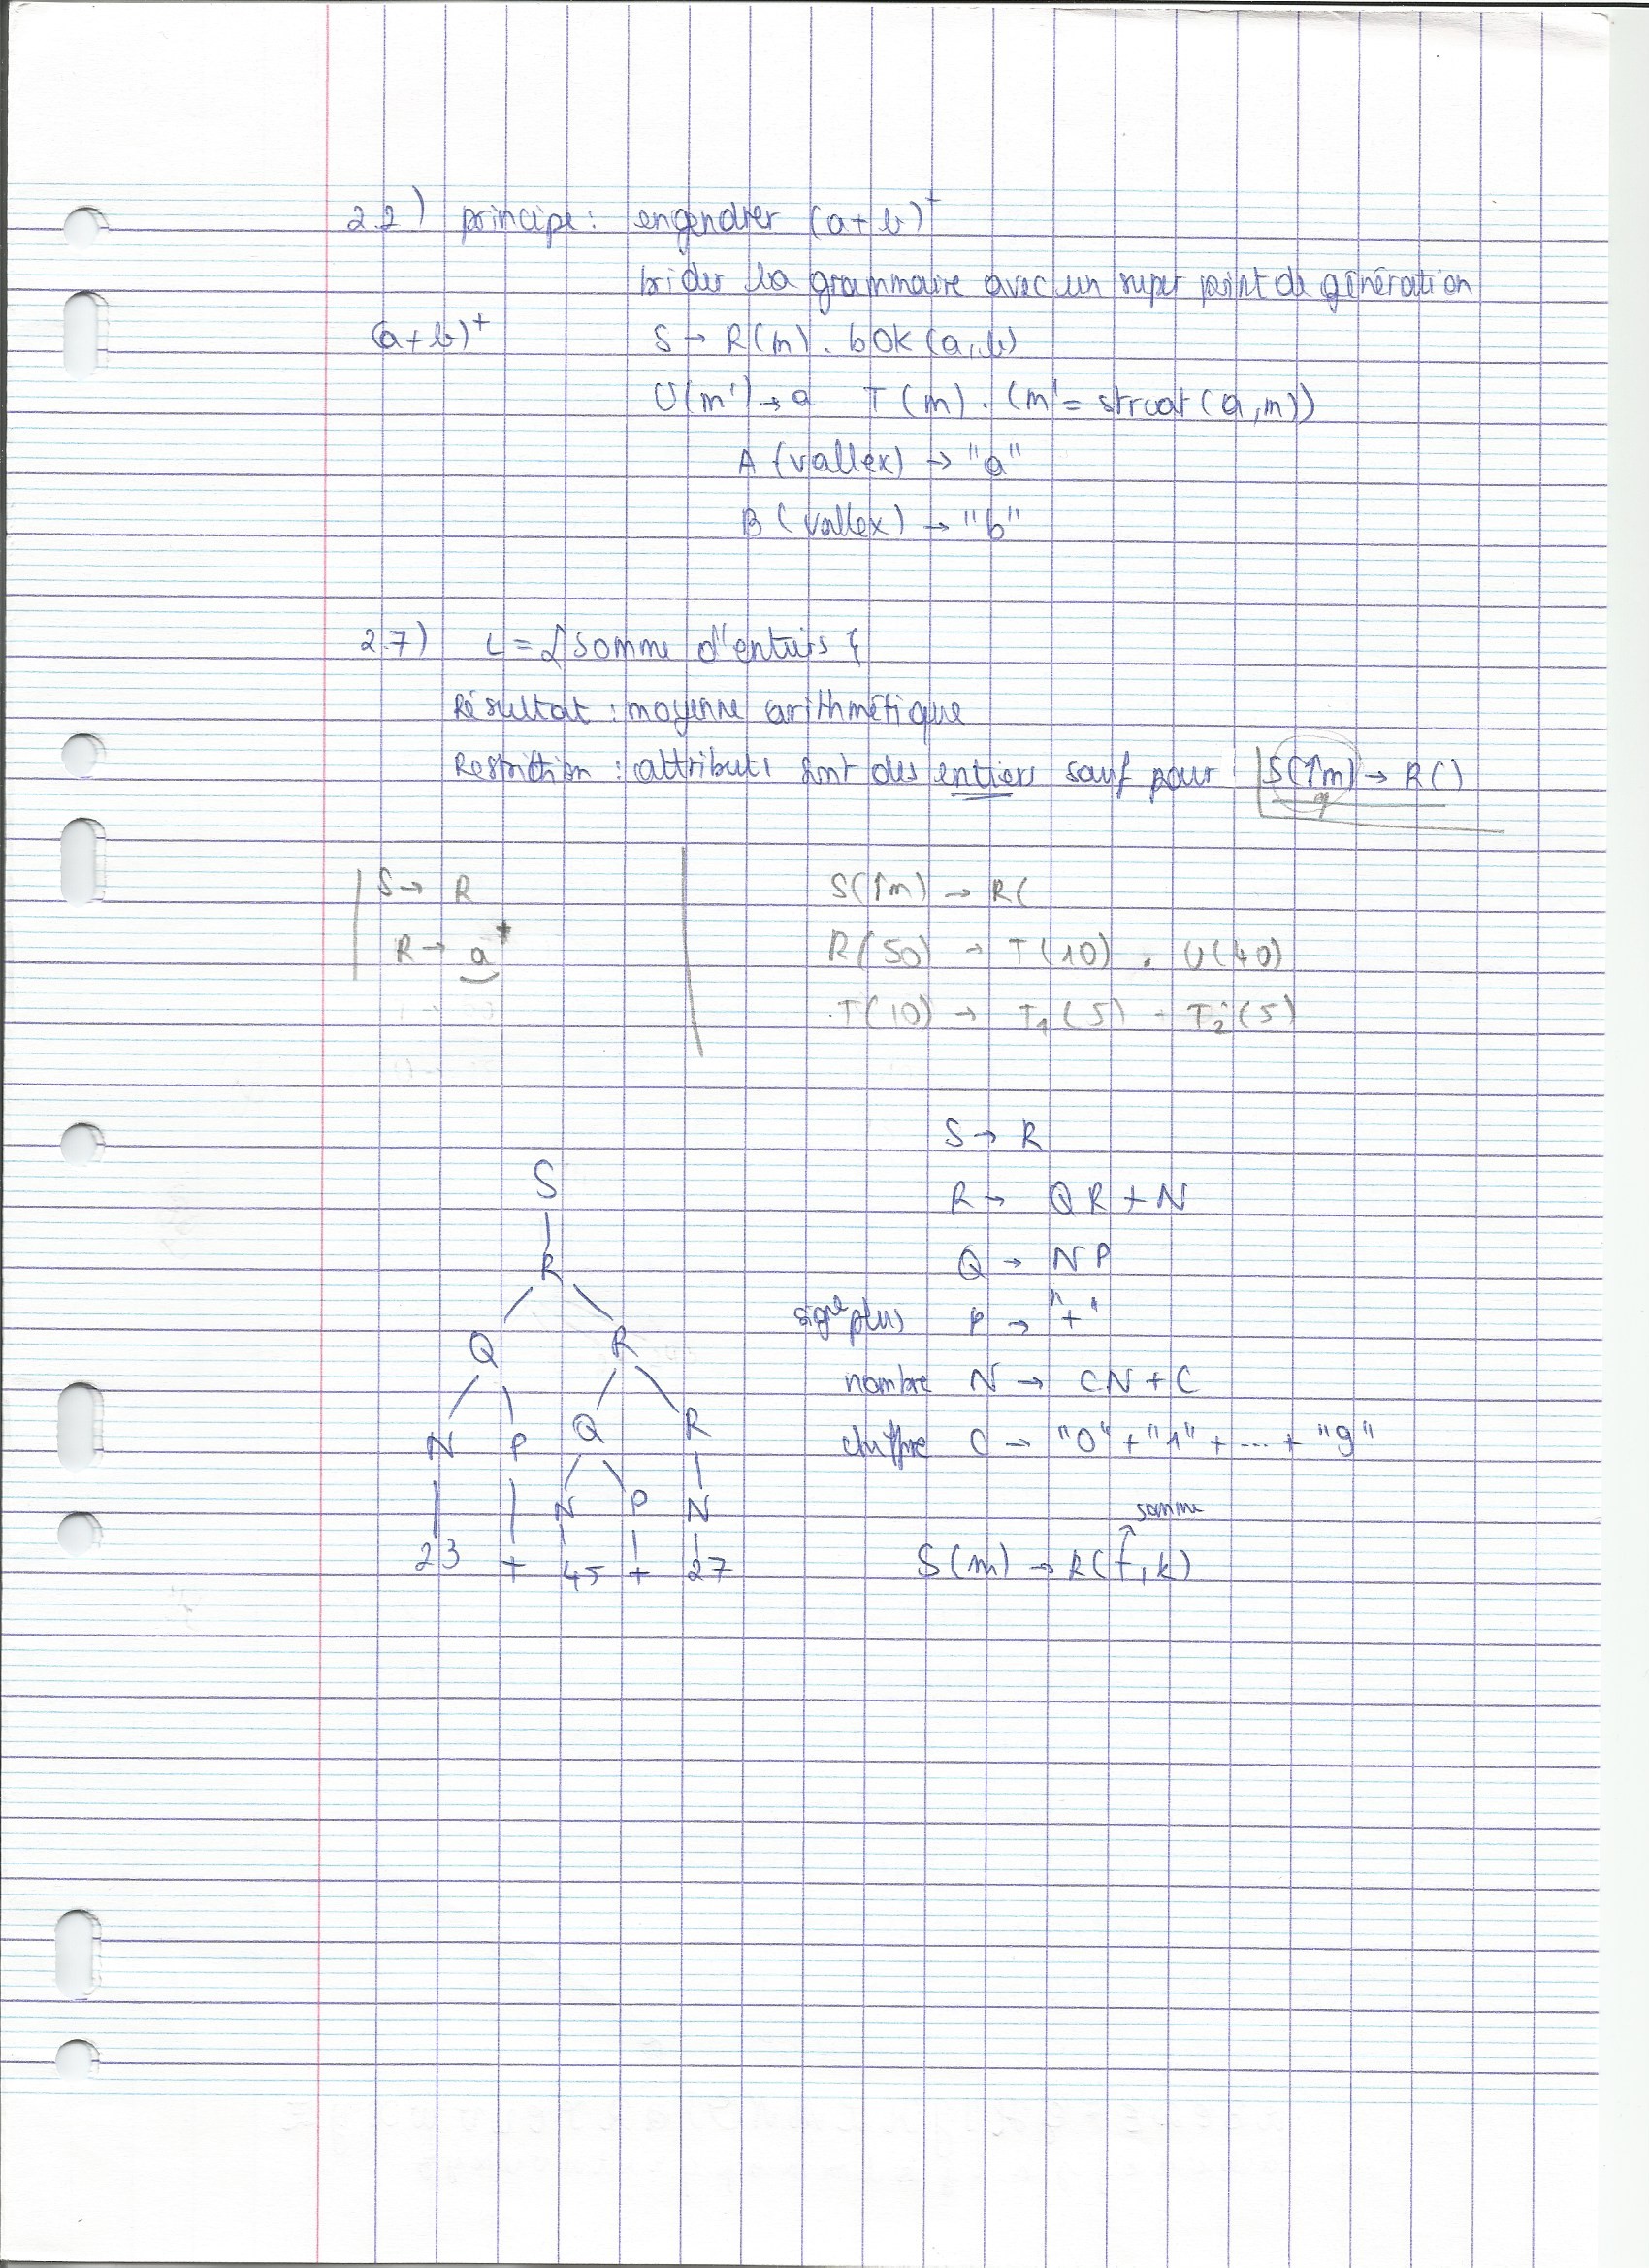 2.2) principe : engendrer (a+b)⁺
brider la grammaire avec un super point de génération
(a+b)⁺ S → R(m) . bOK(a,b)
U(m') → a T(m) . (m' = strcat(a,m))
A (vallex) → "a"
B (vallex) → "b"
2.7) L = { somme d'entiers }
Résultat : moyenne arithmétique
Restriction : attributs sont des entiers sauf pour S(↑m) → R()
S → R
R → a⁺
S(↑m) → R(
R(50) → T(10) . U(40)
T(10) → T₁(5) - T₂(5)
S → R
R → QR + N
Q → NP
signe plus P → "+"
nombre N → CN + C
chiffre C → "0" + "1" + ... + "9"
somme
S(m) → R(f,k)
S
R
Q R
N P Q R
N P N
23 + 45 + 27